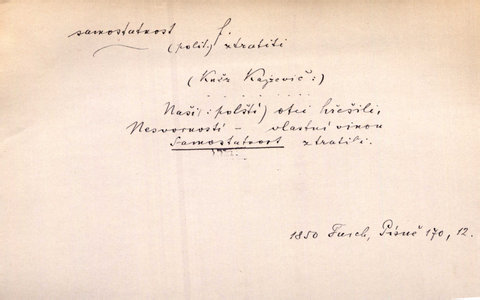 samostatnost f.
(polit.) ztratiti
(Kněz Kajevič:)
. . . . . . . .
Naši (: polští) otci hřešili,
Nesvorností – vlastní vinou
Samostatnost ztratili.
1850 Furch, Písně 170, 12.